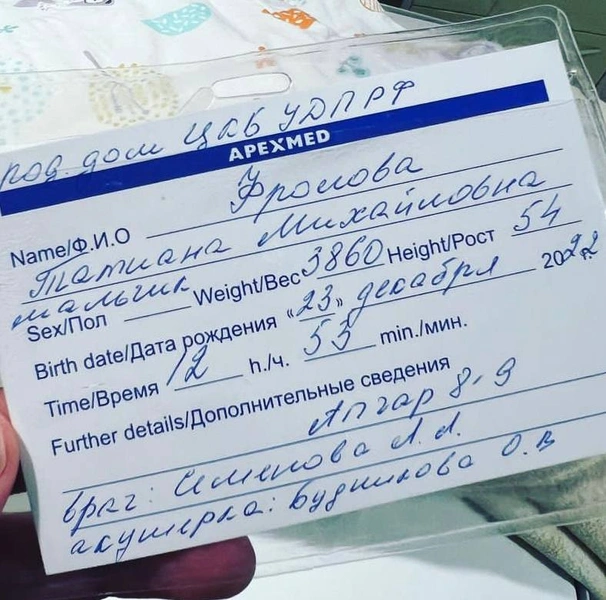 род. дом ЦКБ УДП РФ
APEXMED
Name/Ф.И.О Фролова
Татиана Михайловна
мальчик
Sex/Пол Weight/Вес 3860 Height/Рост 54
Birth date/Дата рождения «23» декабря 2022
Time/Время 12 h./ч. 53 min./мин.
Further details/Дополнительные сведения
Апгар 8-9
врач: Семенова Л. Л.
акушерка: Будникова О. В